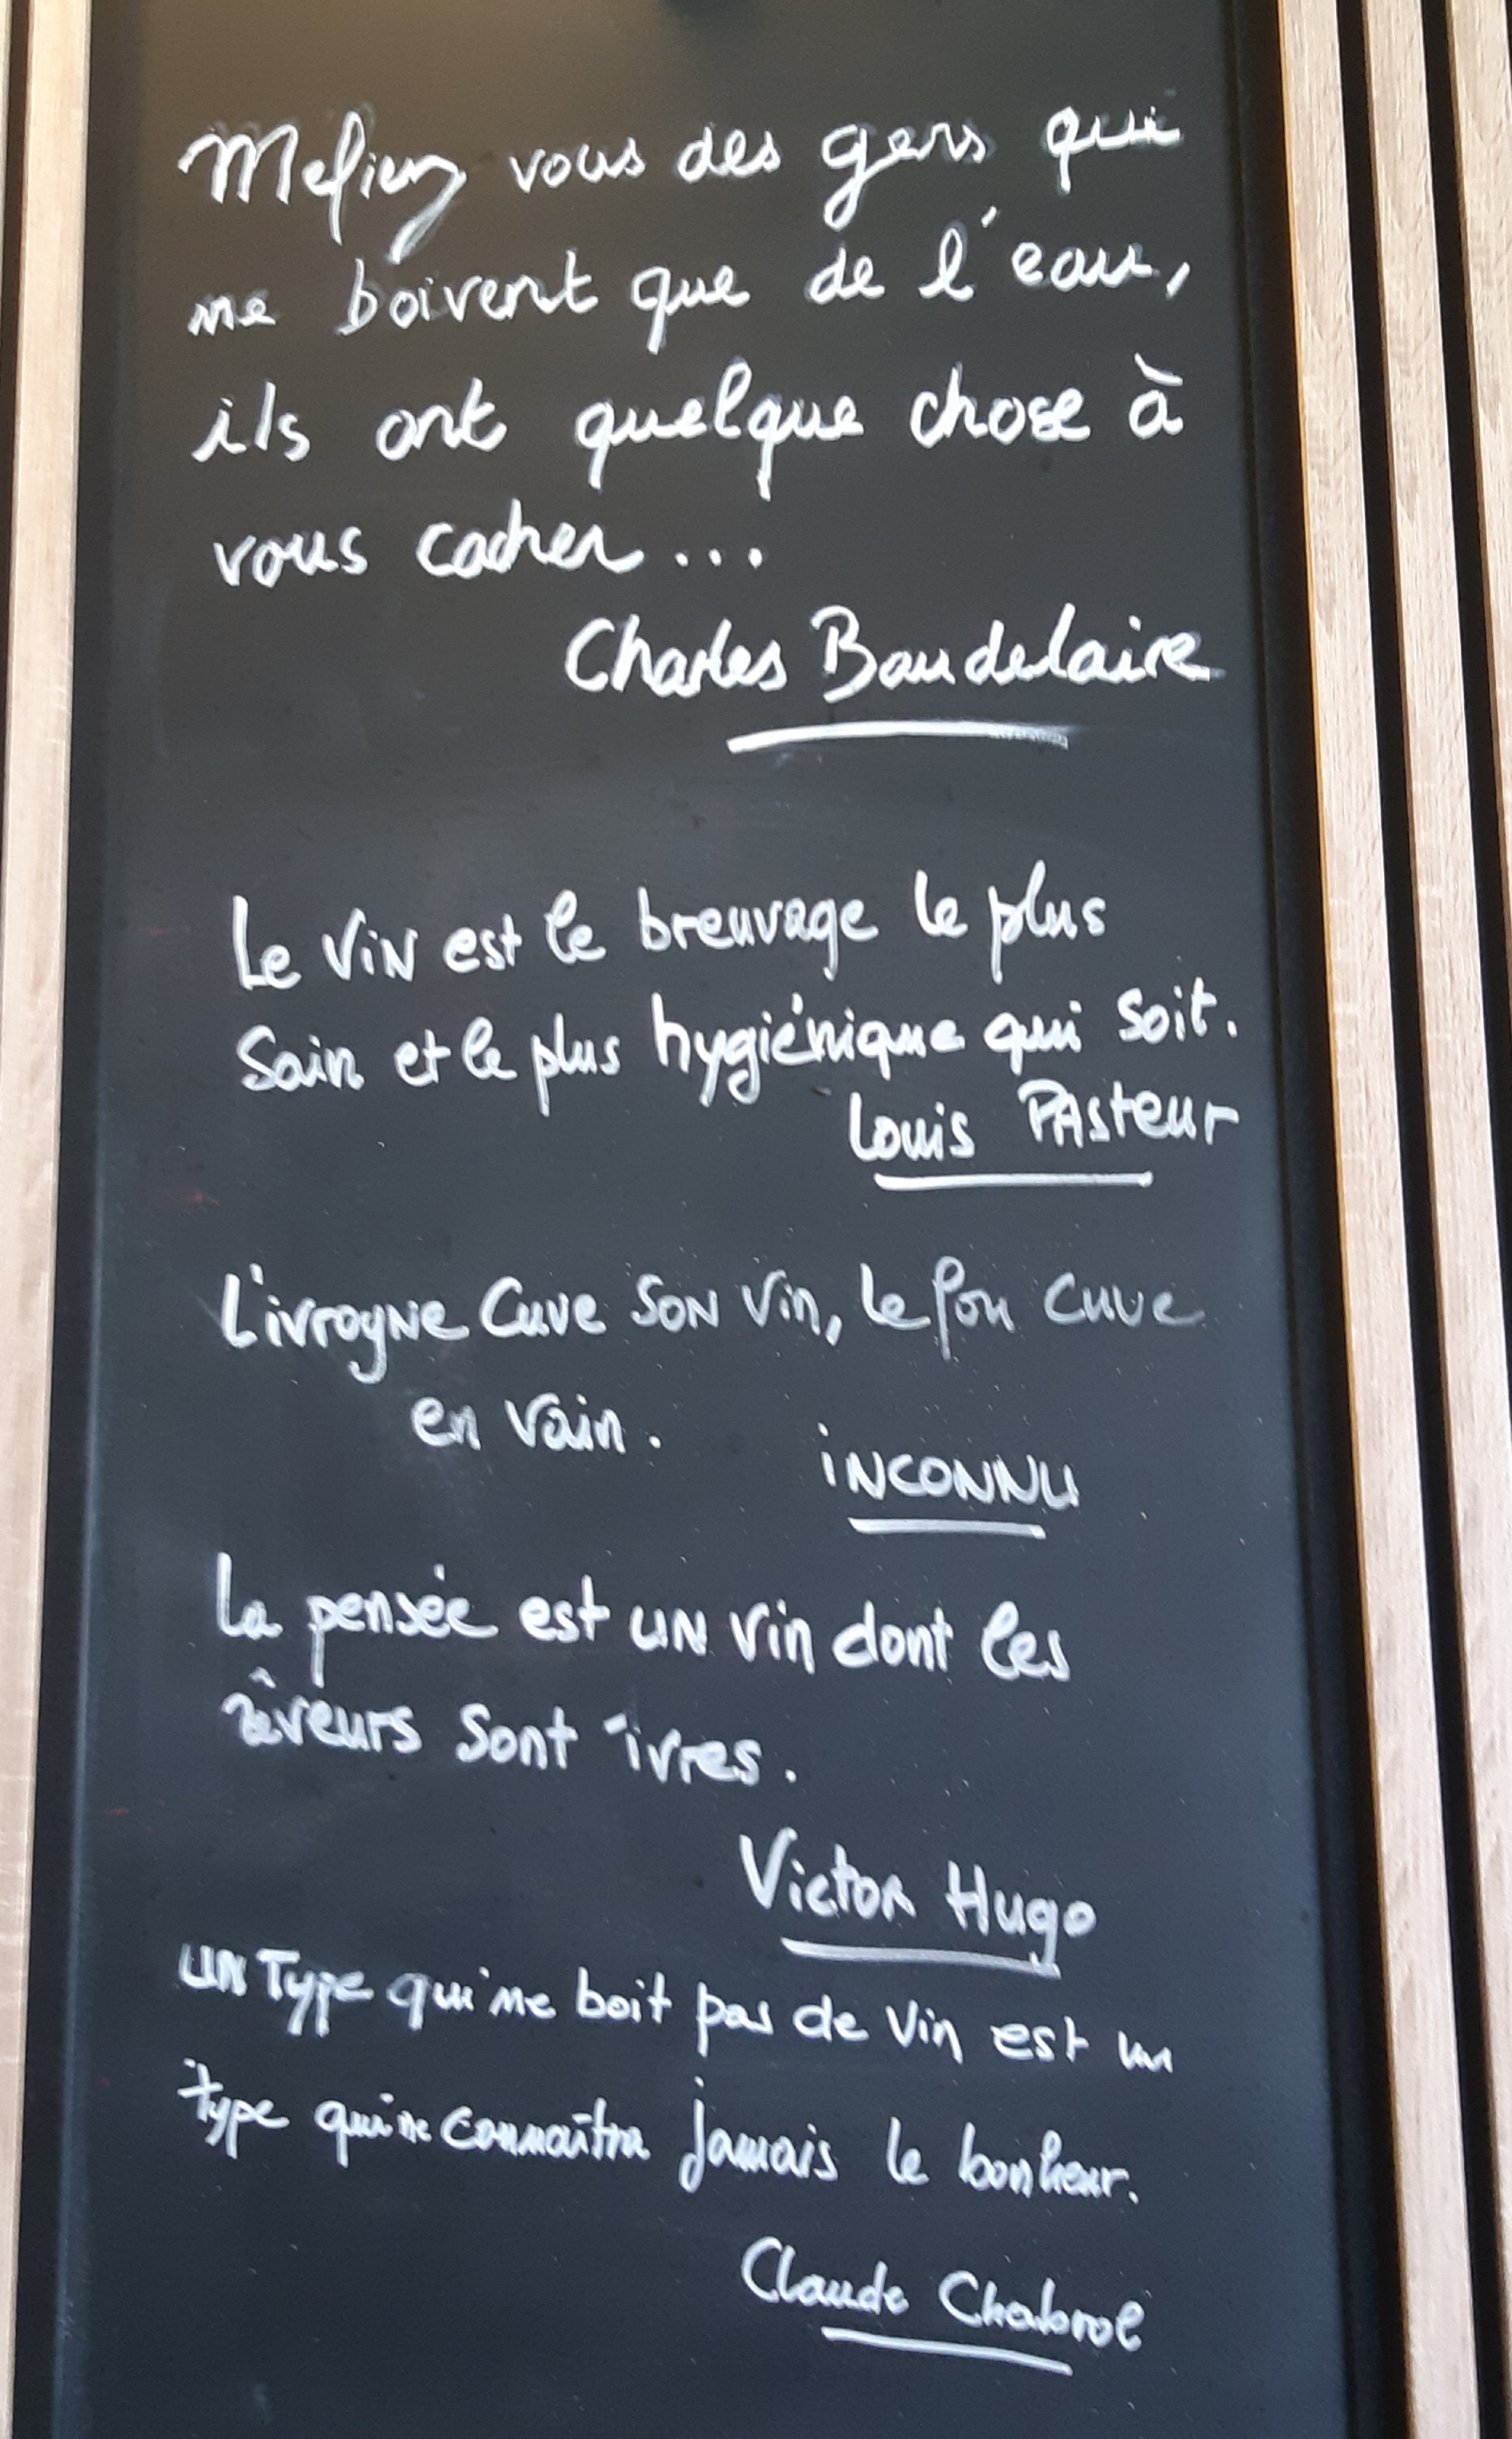 Mefiez vous des gens qui
ne boivent que de l'eau,
ils ont quelque chose à
vous cacher...
Charles Baudelaire
Le ViN est le breuvage le plus
Sain et le plus hygiénique qui soit.
Louis PAsteur
L'ivrogne Cuve SON Vin, le fou cuve
en Vain.
iNCONNU
La pensée est UN Vin dont les
rêveurs sont îvres.
Victor Hugo
UN Type qui ne boit pas de Vin est un
type qui ne connaîtra jamais le bonheur.
Claude Chabrol